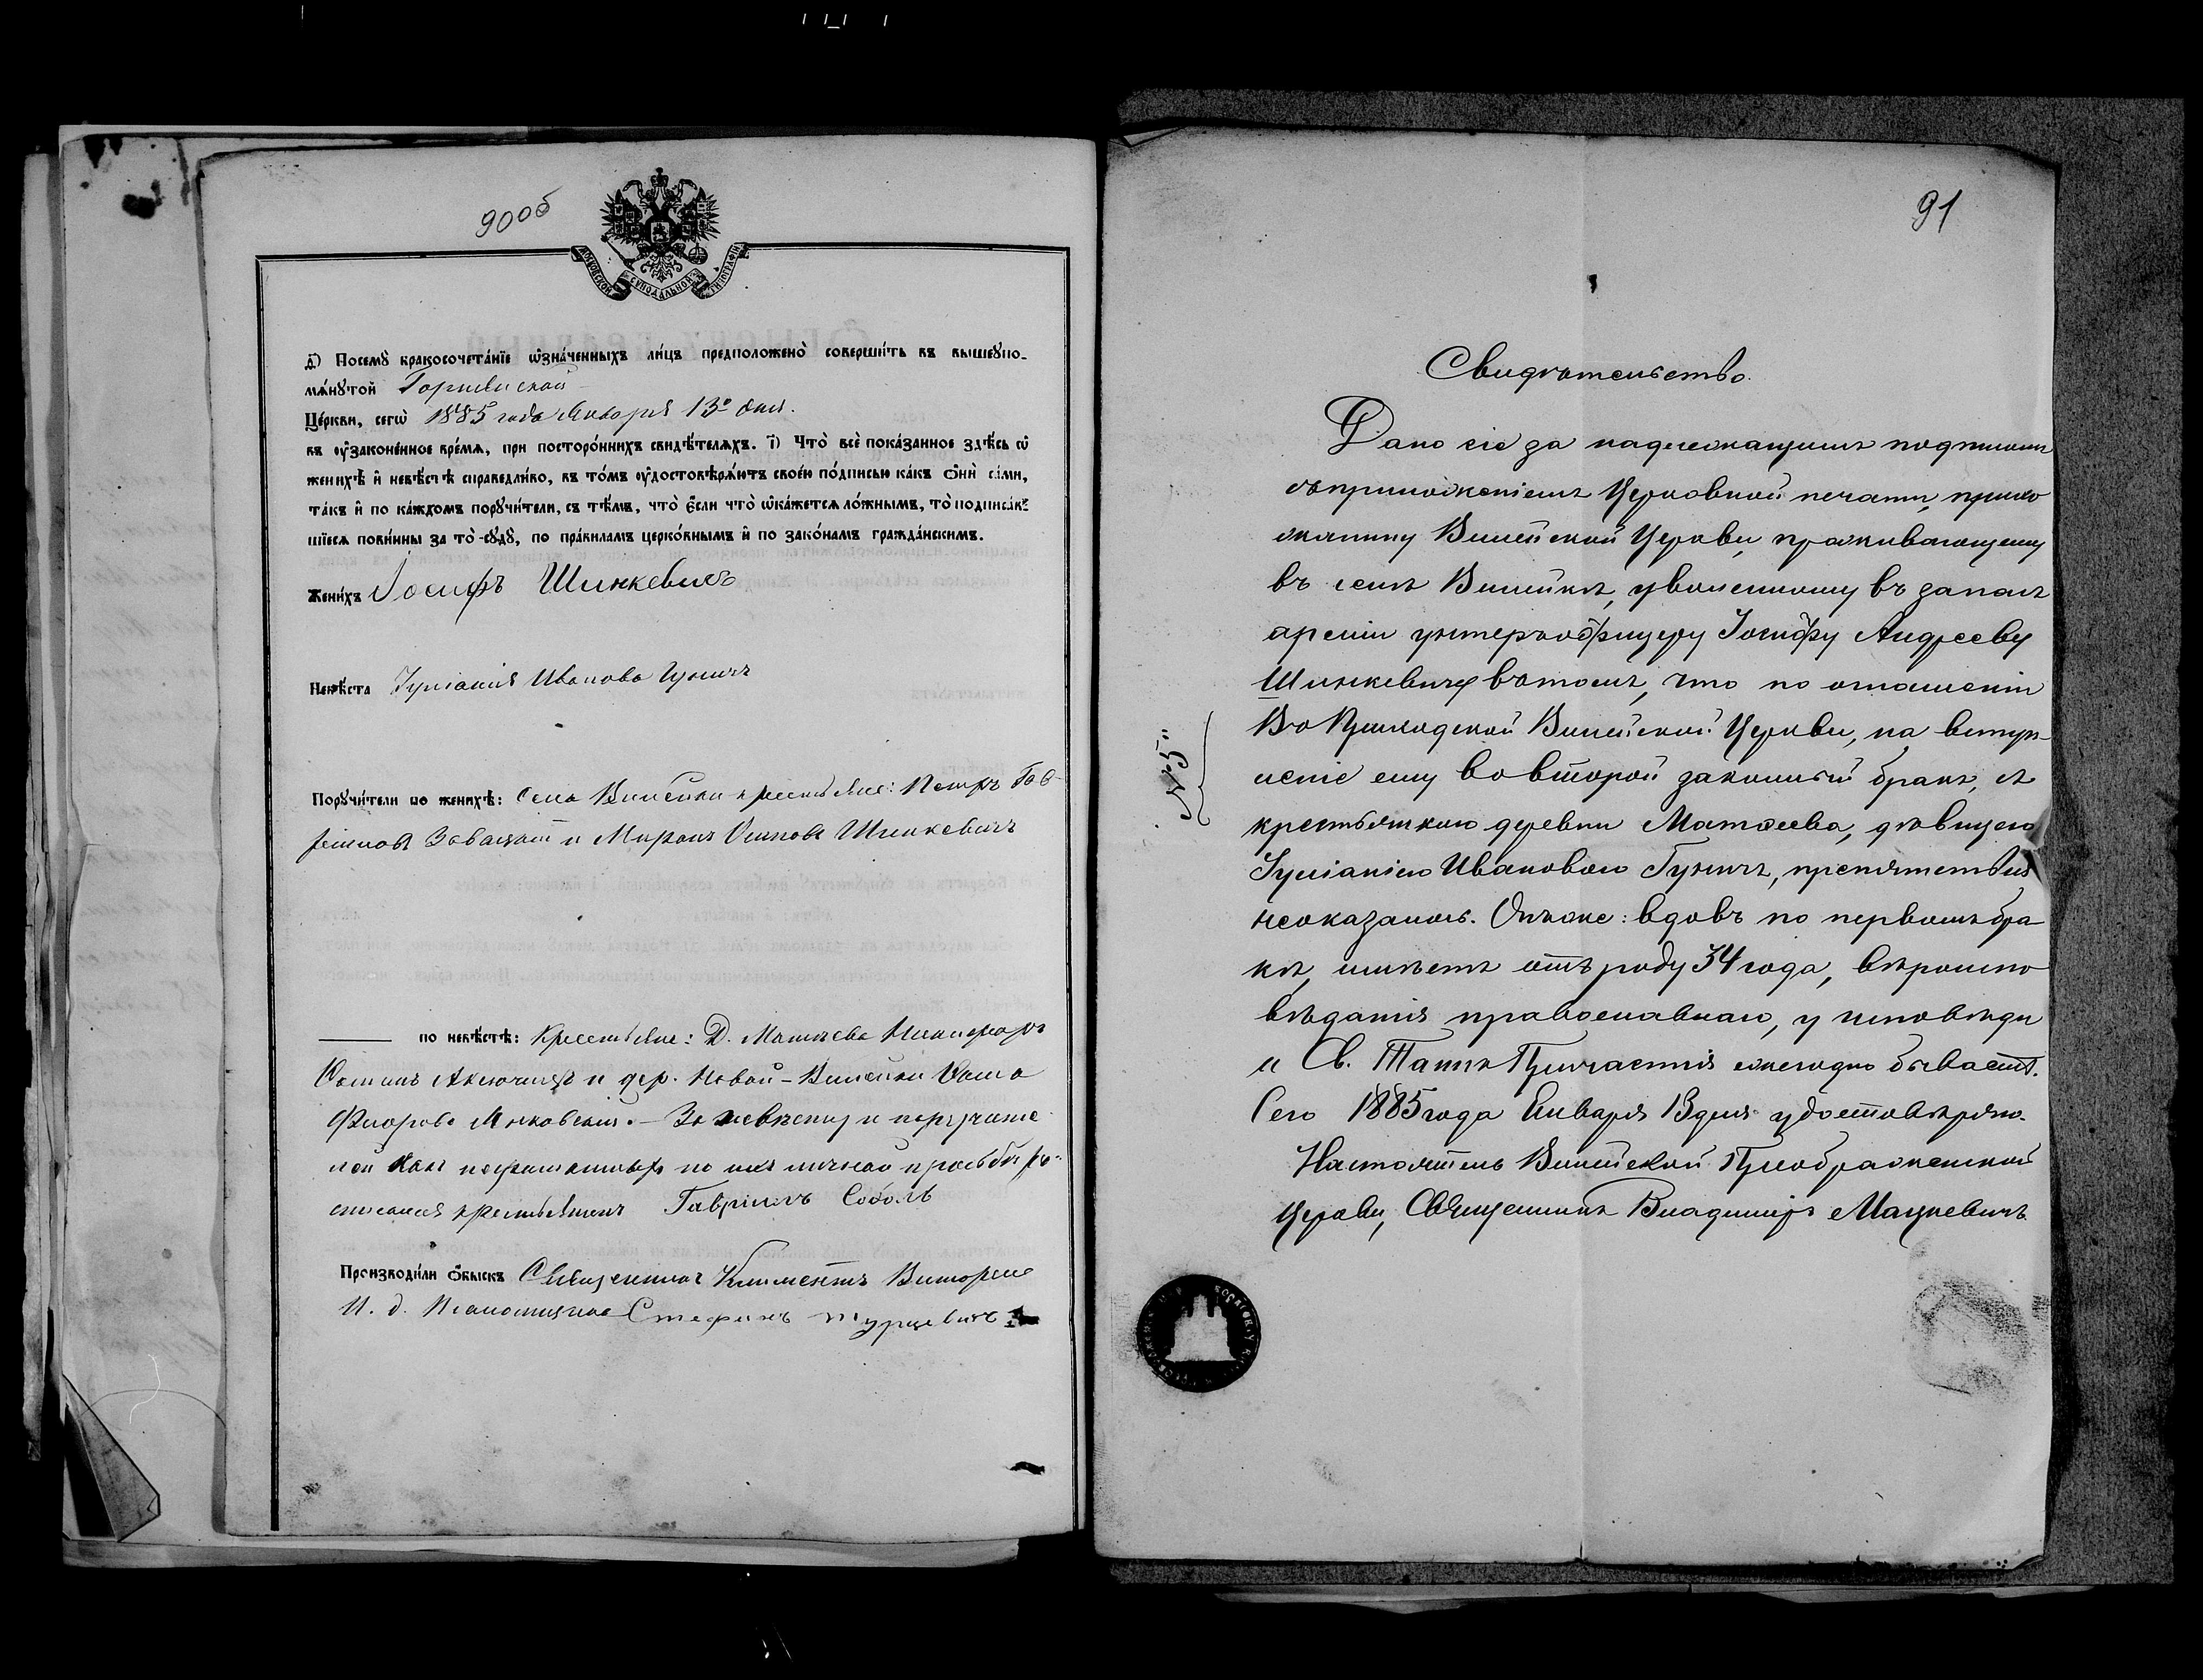 90об
МОСКОВСКОЙ СѴНОДАЛЬНОЙ ТИПОГРАФІИ
Посемꙋ̀ бракосочета́нїе ѡ҆зна́ченныхъ ли́цъ предположено̀ соверши́ть въ вышеꙋпо-
мѧ́нꙋтой
Це́ркви, сегѡ̀ 1885 года Января 13го дня.
въ ᲂу҆зако́ненное вре́мѧ, при посторо́ннихъ свидѣ́телѧхъ. і҃) Что̀ всѐ пока́занное здѣ́сь ѡ҆
женихѣ̀ и҆ невѣ́стѣ справедли́во, въ то́мъ ᲂу҆достовѣрѧ́ютъ свое́ю по́дписью ка́къ ѻ҆нѝ са́ми,
та́къ и҆ по ка́ждомъ порꙋчи́тели, съ тѣ́мъ, что̀ є҆́сли что̀ ѡ҆ка́жетсѧ ло́жнымъ, то̀ подписа́в-
шїесѧ пови́нны за то̀ сꙋдꙋ̀, по пра́виламъ церко́внымъ и҆ по зако́намъ гражда́нскимъ.
Жени́хъ Іосифъ Шинкевичъ
Невѣ́ста Іуліанія Иванова Гуничъ
Порꙋчи́тели по женихѣ̀: Села Вилейки крестьяне: Петръ Гав-
ріиловъ и Миронъ Осиповъ Шинкевичъ
по невѣ́стѣ: Крестьяне: Д. Матѣева Никифоръ
и дер. Новой-Вилейки
За невѣсту и поручите
лей какъ неграмотныхъ по ихъ личной просьбѣ ро-
списался крестьянинъ Гавріилъ Соболь
Производи́ли ѻ҆́быскъ Священникъ Климентъ
И. д. Псаломщика Стефанъ Турцевичъ
91
Свидѣтельство.
Дано сіе за надлежащимъ подписомъ
съ приложеніемъ Церковной печати, прихо
жанину Вилейской Церкви, проживающему
въ селѣ Вилейкѣ, уволенному въ запасъ
арміи унтеръ-офицеру Іосифу Андрееву
Шинкевичу въ томъ, что по отношенію
Къ Приходской Вилейской Церкви, на вступ-
леніе ему во второй законный бракъ, съ
крестьянкою деревни Матѣева, дѣвицею
Іуліаніею Ивановою Гуничъ, препятствія
неоказалось. Онъ же: вдовъ по первомъ бра
кѣ, имѣетъ отъ роду 34 года, вѣроиспо
вѣданія православнаго, у исповѣди
и Св. Таинъ Причастія ежегодно бываетъ.
Сего 1885 года Января 13 дня удостовѣряю.
Настоятель Вилейской Преображенской
Церкви, Священникъ Владиміръ Мацкевичъ
№ 5й